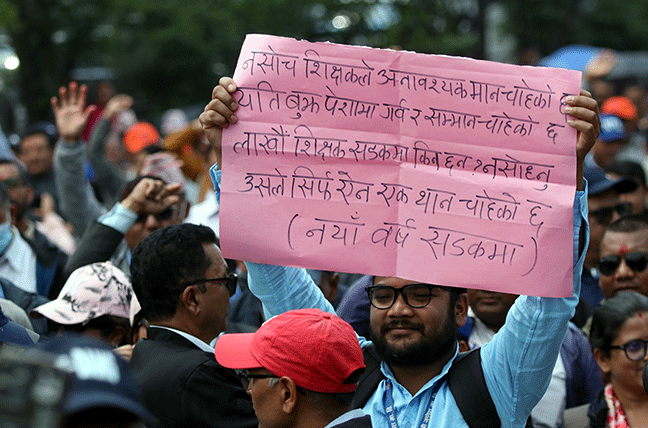 नसोच शिक्षकले अनावश्यक मान चाहेको छ
यति बुझ पेशामा गर्व र सम्मान चाहेको छ
लाखौं शिक्षक सडकमा किन छन ? नसोध्नु
उसले सिर्फ ऐन एक थान चाहेको छ
(नयाँ वर्ष सडकमा)